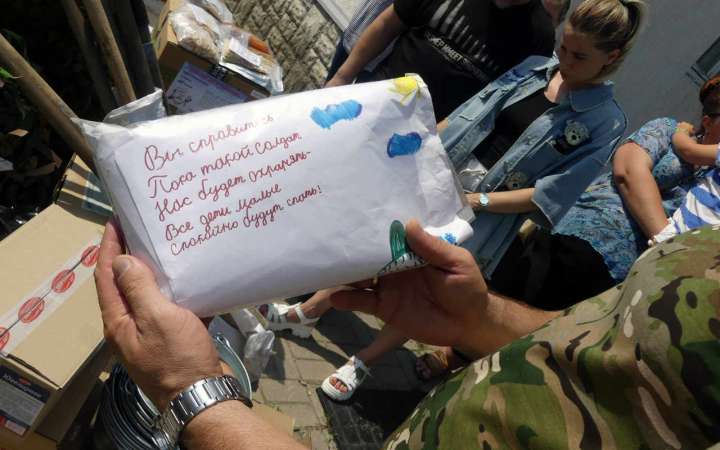 Вы справитесь
Пока такой солдат
Нас будет охранять-
Все дети малые
спокойно будут спать!